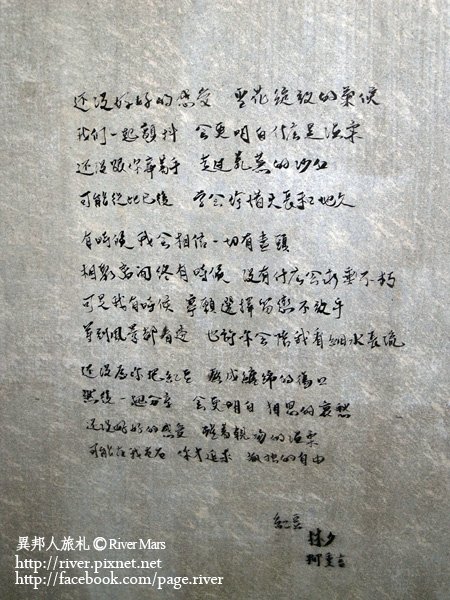 还没好好的感受 雪花綻放的氣候
我们一起顫抖 会更明白什么是温柔
还没跟你牵著手 走过荒蕪的沙丘
可能從此已後 学会珍惜天長和地久
有時候我会相信一切有盡頭
相聚离開終有時候 没有什么会永垂不朽
可是我有時候 寧願選擇留戀不放手
等到風景都看透 也許你会陪我看細水長流
还没為你把红豆 熬成纏綿的傷口
然後一起分享 会更明白 相思的哀愁
还没好好的感受 醒着親吻的温柔
可能在我左右 你才追求 孤独的自由
紅豆
林夕
柳重言
異邦人旅札 © River Mars
http://river.pixnet.net
http://facebook.com/page.river